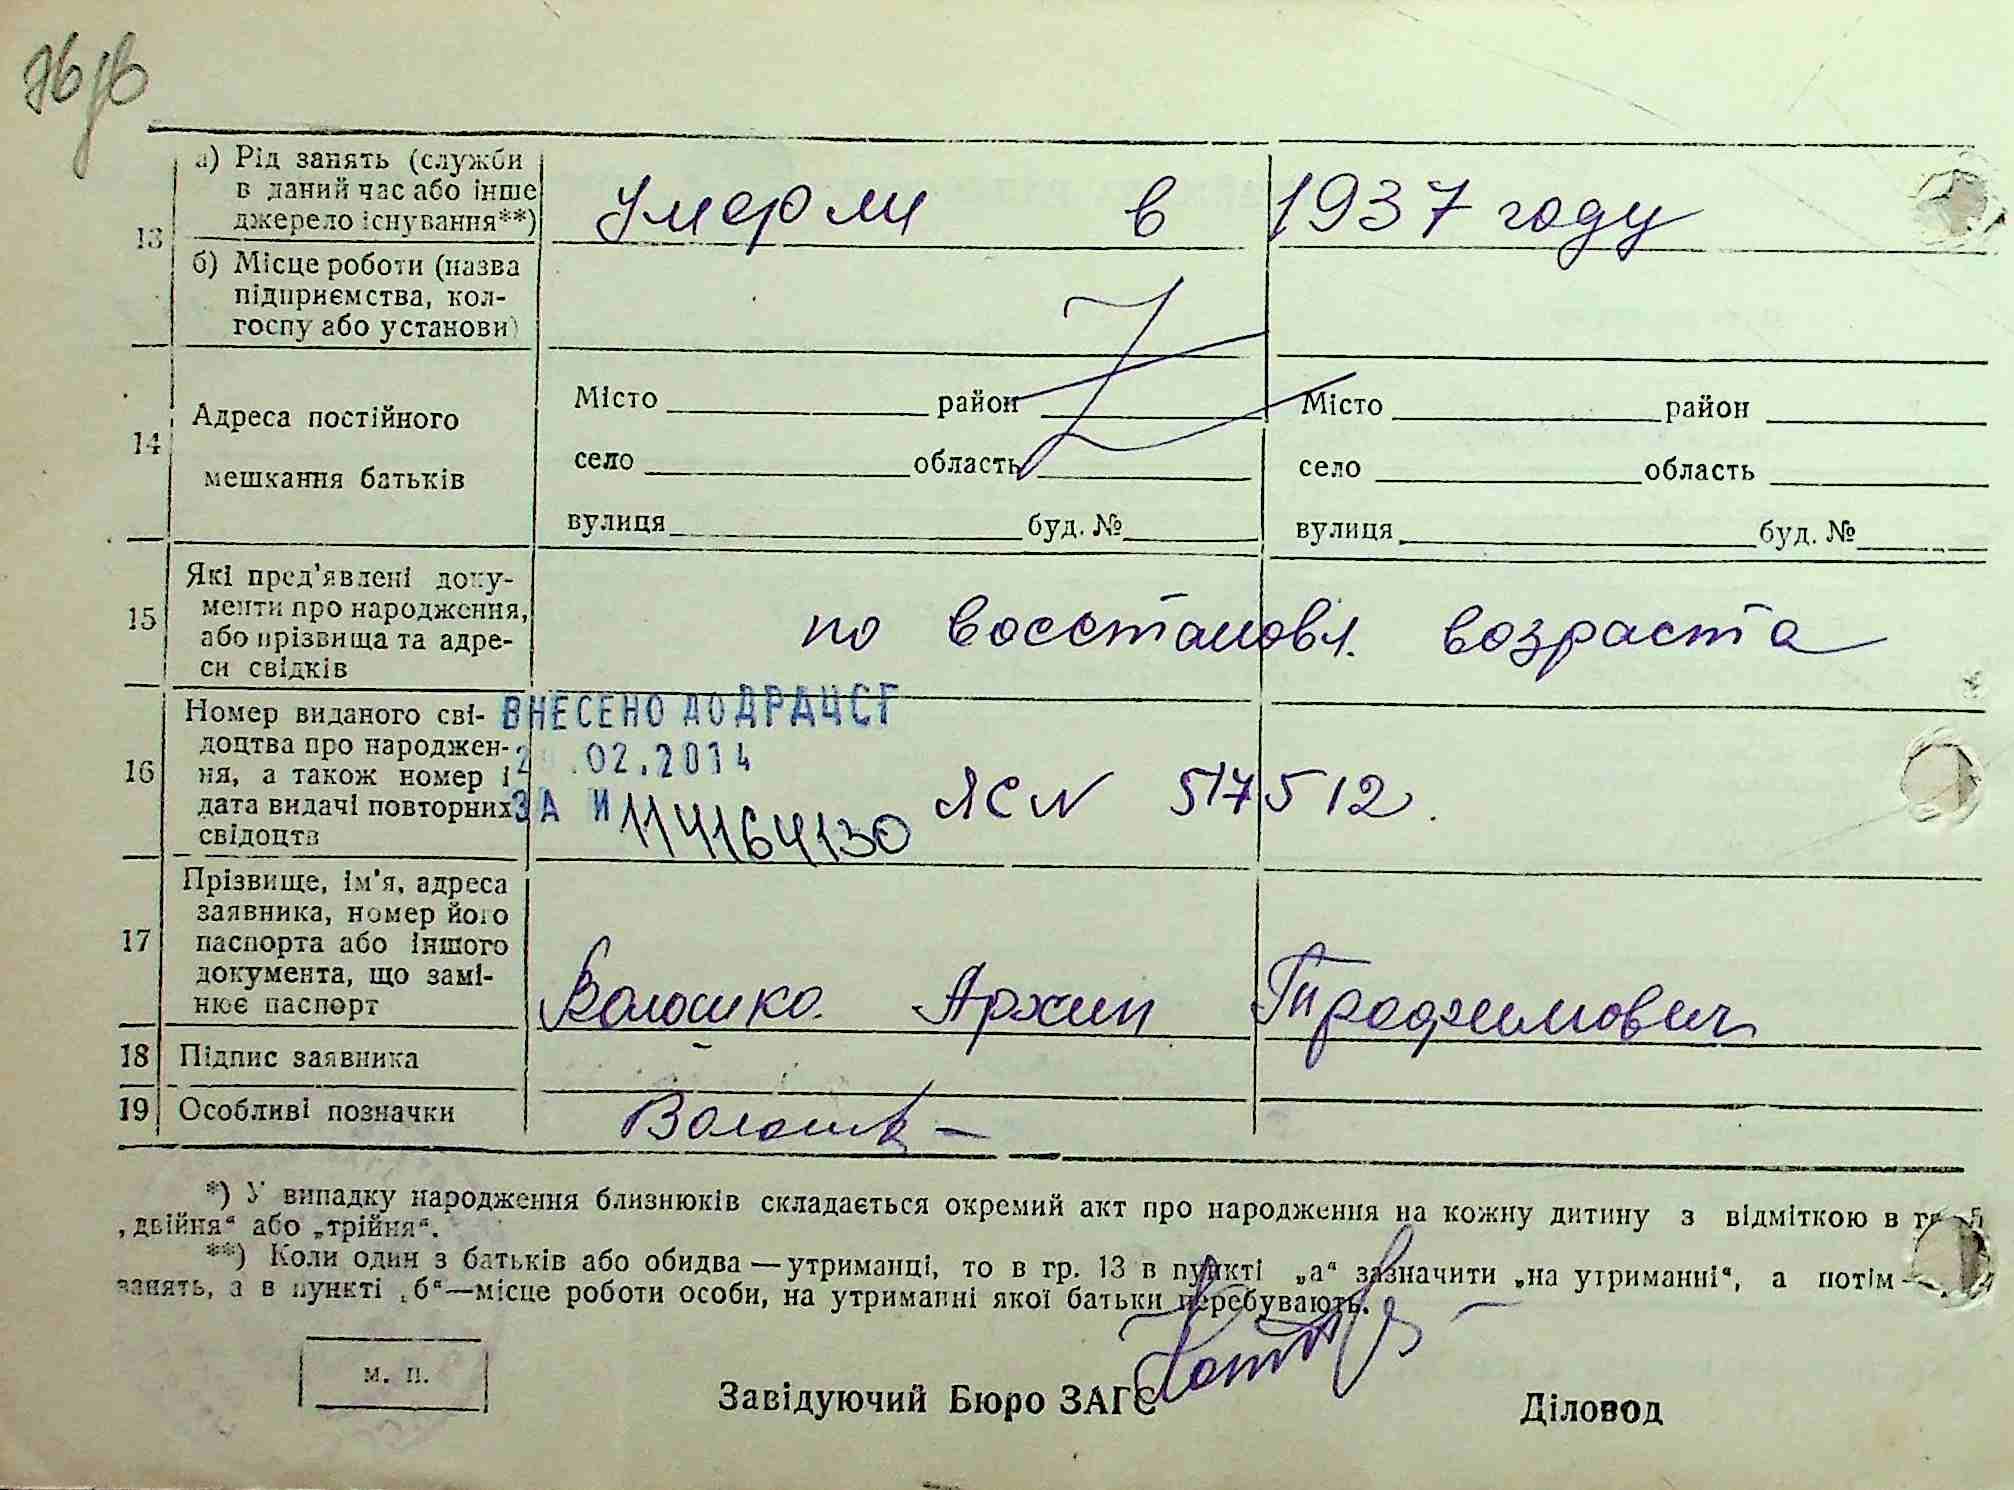 а) Рід занять (служби
в даний час або інше
джерело існування**)
Умерли в 1937 году
13
б) Місце роботи (назва
підприємства, кол-
госпу або установи)
14
Адреса постійного
мешкання батьків
Місто район Місто район
село область село область
вулиця буд. № вулиця буд. №
15
Які пред'явлені доку-
менти про народження,
або прізвища та адре-
си свідків
по восстановл. возраста
16
Номер виданого сві-
доцтва про народжен-
ня, а також номер і
дата видачі повторних
свідоцтв
ВНЕСЕНО ДО ДРАЦСГ
.02.2014
ЗА И 114164130
ЯС N 517512.
17
Прізвище, ім'я, адреса
заявника, номер його
паспорта або іншого
документа, що замі-
нює паспорт
Волошко Архип Трофимович
18 Підпис заявника
19 Особливі позначки
Волошк
*) У випадку народження близнюків складається окремий акт про народження на кожну дитину з відміткою в гр. 5
„двійня“ або „трійня“.
**) Коли один з батьків або обидва — утриманці, то в гр. 13 в пункті „а“ зазначити „на утриманні“, а потім —
занять, а в пункті „б“—місце роботи особи, на утриманні якої батьки перебувають.
м. п.
Завідуючий Бюро ЗАГС Діловод